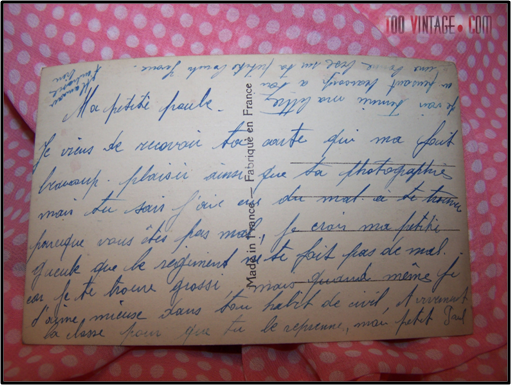 100 VINTAGE.COM
Ma petite poule.
Je viens de recevoir ta carte qui ma fait
beaucoup plaisir ainsi que ta photographie
mais tu sais j'aie eu du mal a te
parceque vous êtes pas mal, je crois ma petite
poule que le regiment ne te fait pas de mal.
car je te trouve grossi, mais quand même je
t'aime mieuse dans ton habit de civil,
la classe pour que tu le reprenne, mon petit Paul
Je vais finir ma lettre
en pensant toujours a toi
sur ta petite
Made in France — Fabriqué en France